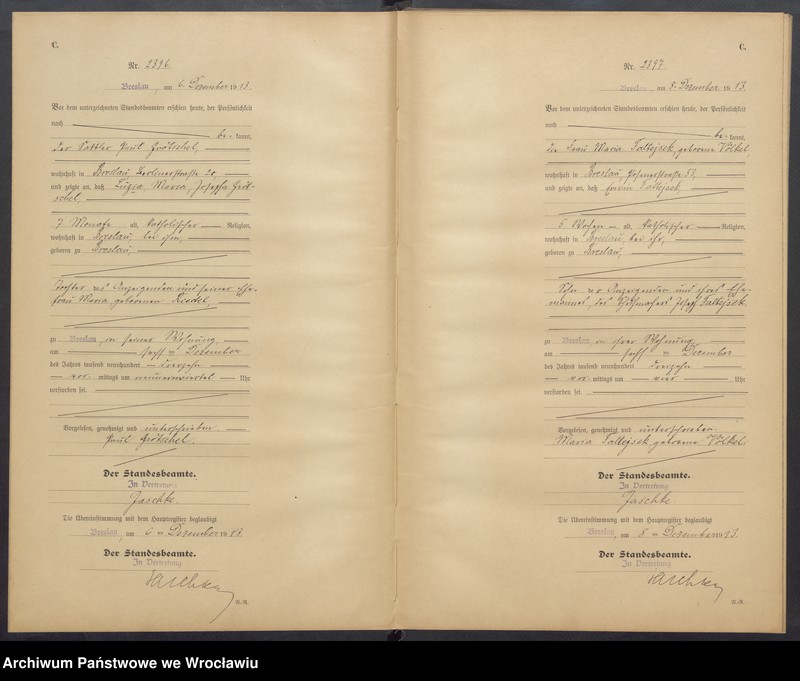 C.
Nr. 2396
Breslau, am 6. Dezember 1913.
Vor dem unterzeichneten Standesbeamten erschien heute, der Persönlichkeit
nach be kannt,
der Sattler Paul Grötschel,
wohnhaft in Breslau, Berlinerstraße 20,
und zeigte an, daß Luzia Maria, Josepha Gröt-
schel,
7 Monate alt, katholischer Religion,
wohnhaft in Breslau, bei ihm,
geboren zu Breslau,
Tochter des Anzeigenden und seiner Ehe-
frau Maria geborenen Riedel,
zu Breslau, in seiner Wohnung,
am sechs ten Dezember
des Jahres tausend neunhundert dreizehn
vor mittags um Uhr
verstorben sei.
Vorgelesen, genehmigt und unterschrieben.
Paul Grötschel.
Der Standesbeamte.
In Vertretung
Jaschke.
Die Übereinstimmung mit dem Hauptregister beglaubigt
Breslau, am 6 ten Dezember 1913.
Der Standesbeamte.
In Vertretung
Jaschke
C.
Nr. 2397
Breslau, am 8. Dezember 1913.
Vor dem unterzeichneten Standesbeamten erschien heute, der Persönlichkeit
nach be kannt,
die Frau Maria Taltejsek, geborene Völkel,
wohnhaft in Breslau, Posenerstraße 52,
und zeigte an, daß Erwin Taltejsek,
5 Wochen alt, katholischer Religion,
wohnhaft in Breslau, bei ihr,
geboren zu Breslau,
Sohn der Anzeigenden und ihres Ehe-
mannes, des Josef Taltejsek
zu Breslau in ihrer Wohnung,
am sechs ten Dezember
des Jahres tausend neunhundert dreizehn
vor mittags um vier Uhr
verstorben sei.
Vorgelesen, genehmigt und unterschrieben.
Maria Taltejsek, geborene Völkel.
Der Standesbeamte.
In Vertretung
Jaschke
Die Übereinstimmung mit dem Hauptregister beglaubigt
Breslau, am 8 ten Dezember 1913.
Der Standesbeamte.
In Vertretung
Jaschke
Archiwum Państwowe we Wrocławiu